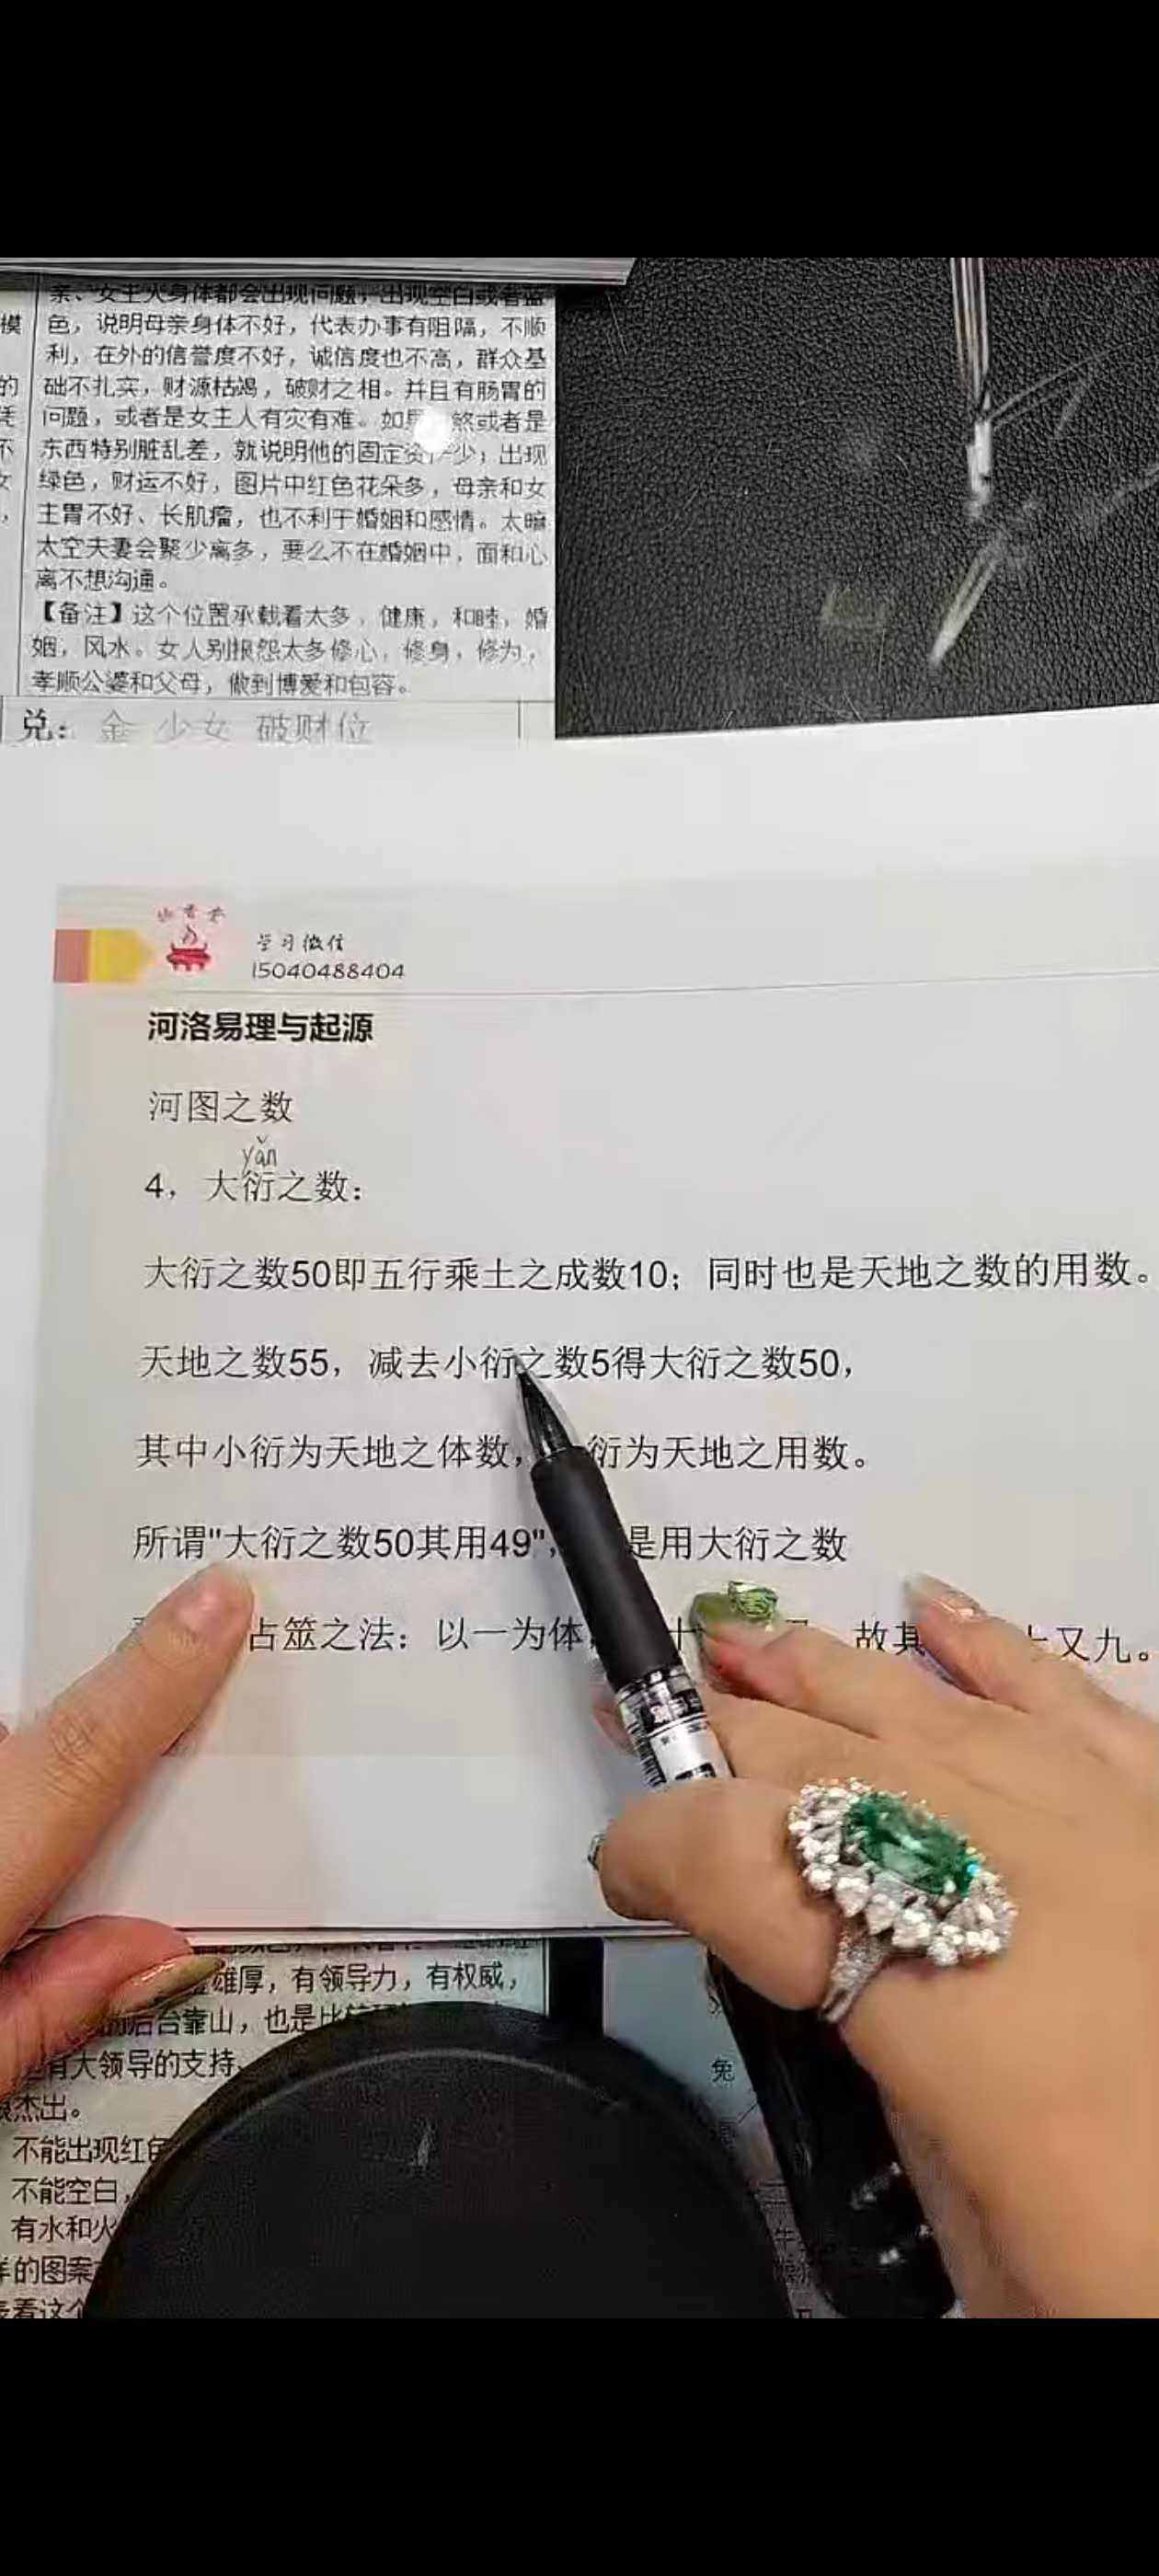 亲、女主人身体都会出现问题，出现空白或者蓝
色，说明母亲身体不好，代表办事有阻隔，不顺
利，在外的信誉度不好，诚信度也不高，群众基
础不扎实，财源枯竭，破财之相。并且有肠胃的
问题，或者是女主人有灾有难。如 煞或者是
东西特别脏乱差，就说明他的固定资 少，出现
绿色，财运不好，图片中红色花朵多，母亲和女
主胃不好、长肌瘤，也不利于婚姻和感情。太暗
太空夫妻会聚少离多，要么不在婚姻中，面和心
离不想沟通。
【备注】这个位置承载着太多，健康，和睦，婚
姻，风水。女人别抱怨太多修心，修身，修为，
孝顺公婆和父母，做到博爱和包容。
兑：金 少女 破财位
模
的
不
学习微信
15040488404
河洛易理与起源
河图之数
yǎn
4，大衍之数：
大衍之数50即五行乘土之成数10；同时也是天地之数的用数。
天地之数55，减去小衍之数5得大衍之数50，
其中小衍为天地之体数， 衍为天地之用数。
所谓"大衍之数50其用49"， 是用大衍之数
占筮之法：以一为体， 十 故其 又九。
雄厚，有领导力，有权威，
后台靠山，也是比
有大领导的支持、
杰出。
不能出现红色
不能空白，
有水和火
样的图案
看这个
兔
牛